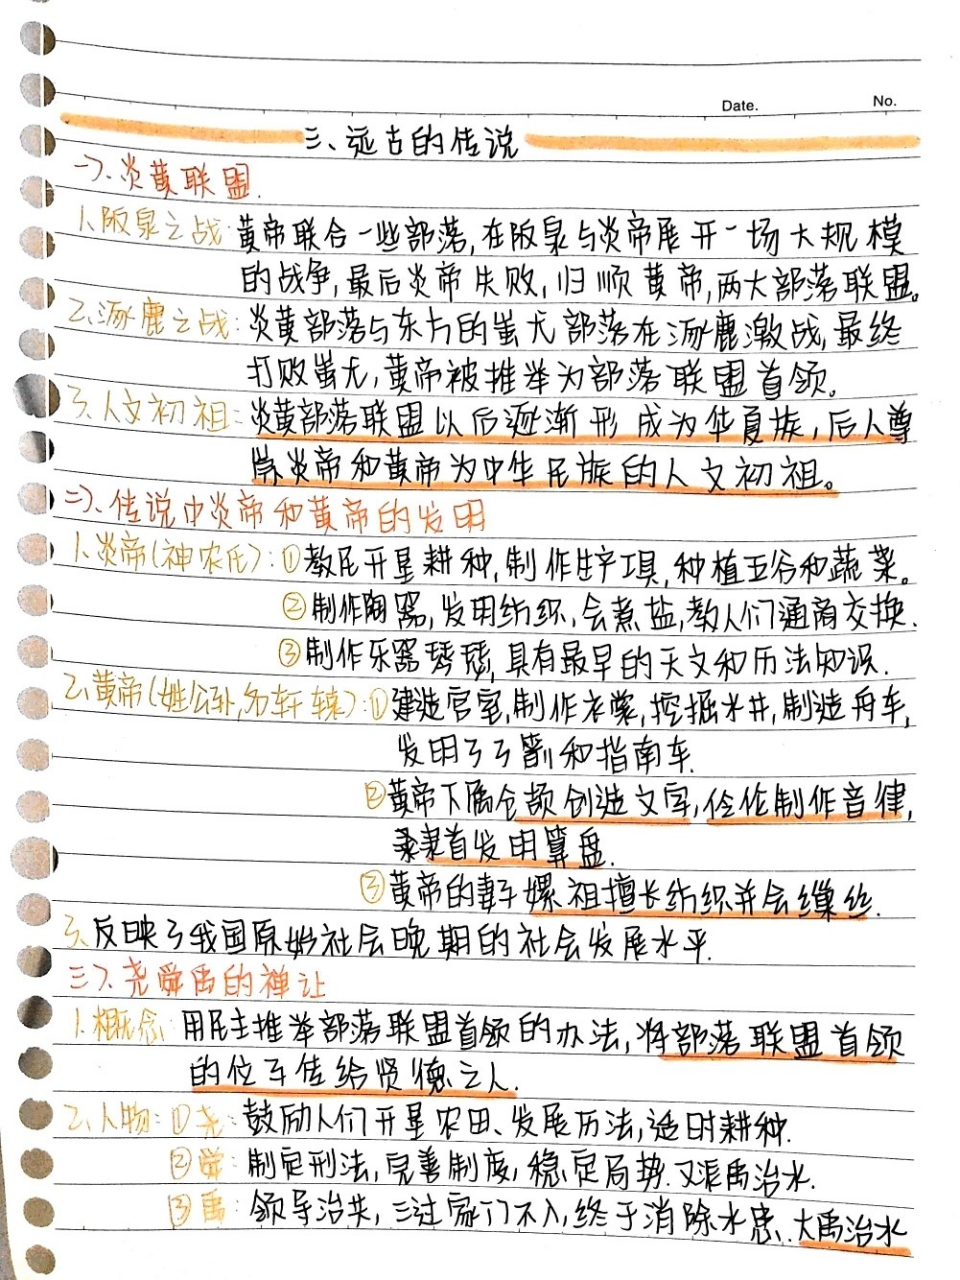 Date.
No.
三、远古的传说
一>、炎黄联盟.
1、阪泉之战:黄帝联合一些部落,在阪泉与炎帝展开一场大规模
的战争,最后炎帝失败,归顺黄帝,两大部落联盟。
2、涿鹿之战:炎黄部落与东方的蚩尤部落在涿鹿激战,最终
打败蚩尤,黄帝被推举为部落联盟首领。
3、人文初祖:炎黄部落联盟以后逐渐形成为华夏族,后人尊
崇炎帝和黄帝为中华民族的人文初祖。
二>、传说中炎帝和黄帝的发明
1、炎帝(神农氏):①教民开垦耕种,制作生产工具,种植五谷和蔬菜。
②制作陶器,发明纺织,会煮盐,教人们通商交换.
③制作乐器琴瑟,具有最早的天文和历法知识.
2、黄帝(姓公孙,名轩辕):①建造宫室,制作衣裳,挖掘水井,制造舟车,
发明了弓箭和指南车.
②黄帝下属仓颉创造文字,伶伦制作音律,
隶首发明算盘.
③黄帝的妻子嫘祖擅长纺织并会缫丝.
3、反映了我国原始社会晚期的社会发展水平.
三>、尧舜禹的禅让
1、概念:用民主推举部落联盟首领的办法,将部落联盟首领
的位子传给贤德之人.
2、人物:①尧:鼓励人们开垦农田、发展历法,适时耕种.
②舜:制定刑法,完善制度,稳定局势.又派禹治水.
③禹:领导治洪,三过家门不入,终于消除水患.大禹治水